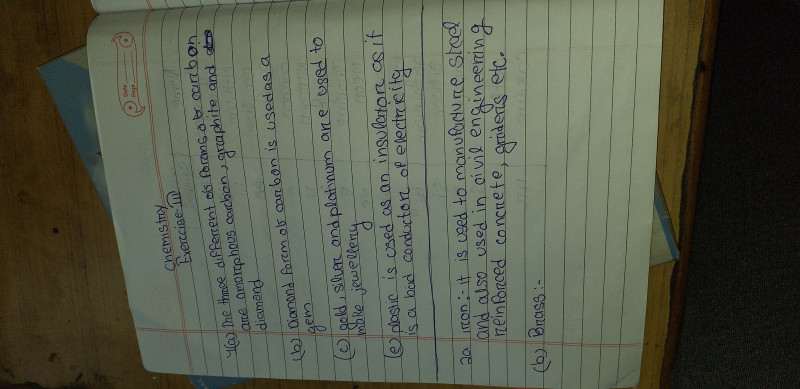 Chemistry
Exercise-III
1(a) The three different of forms of carbon
are amorphous carbon, graphite and
diamond
(b) Diamond form of carbon is used as a
gem
(c) gold, silver and platinum are used to
make jewellery
(e) plasic is used as an insulator as it
is a bad conductor of electricity
2a iron:- it is used to manufacture steel
and also used in civil engineering
reinforced concrete, griders etc.
(b) Brass:-